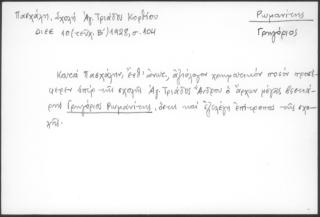 Πασχάλη, Σχολή Ἁγ. Τριάδος Κορθίου
ΔΙΕΕ 10 (τεῦχ. Β') 1928, σ. 104
Ρωμανίτης
Γρηγόριος
Κατά Πασχάλην, ἔνθ' ἀνωτ., ἀξιόλογον χρηματικόν ποσόν προσ-
έφερεν ὑπέρ τῆς σχολῆς Ἁγ. Τριάδος Ἄνδρου ὁ ἄρχων μέγας βεστιά-
ρης Γρηγόριος Ρωμανίτης, ὅστις καί ἐξελέγη ἐπίτροπος τῆς σχο-
λῆς.